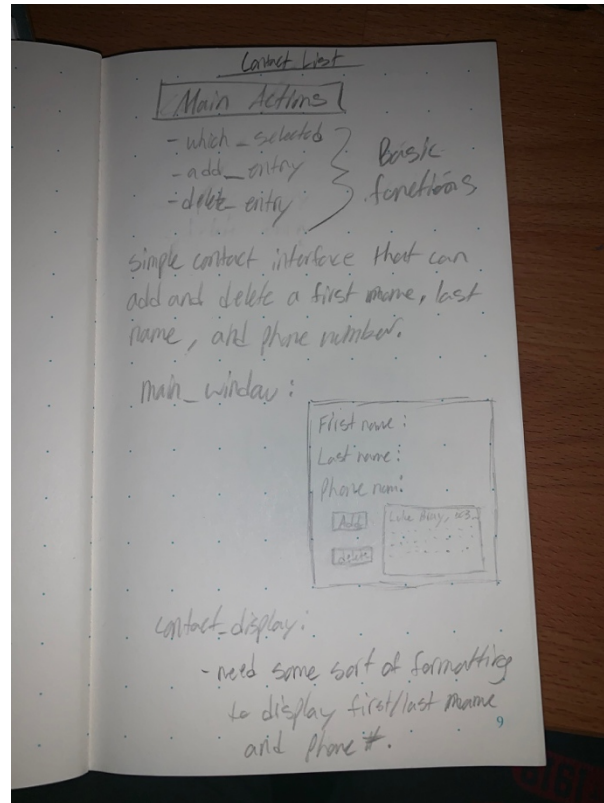 Contact List
Main Actions
- which_selected
- add_entry
- delete_entry
Basic
functions
simple contact interface that can
add and delete a first name, last
name, and phone number.
main_window:
First name:
Last name:
Phone num:
Add
delete
Luke
contact_display:
- need some sort of formatting
to display first/last name
and phone #.
9